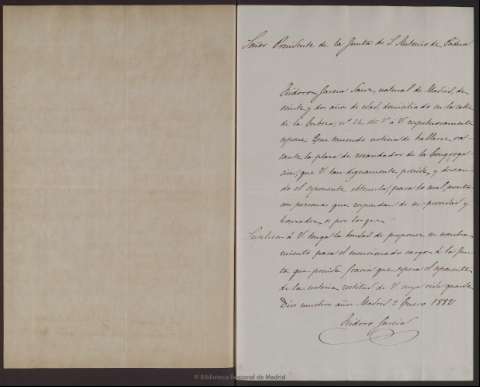 Señor Presidente de la Junta de S. Antonio de Padua
Isidoro Garcia Sanz, natural de Madrid, de
veinte y dos años de edad, domiciliado en la calle
de la nº 24 á V. respetuosamente
espone: Que teniendo noticia de hallarse va-
cante la plaza de mandadero de la Congrega-
cion, que V. tan dignamente preside, y desean-
do el esponente obtenerla, para lo cual cuenta
con personas que respondan de su providad y
honradez, es por lo que
Suplica á V. tenga la bondad de proponer su nombra-
miento para el mencionado cargo á la Jun-
ta que preside; gracia que espera el esponente
de la notoria rectitud de V. cuya vida guarde
Dios muchos años. Madrid 2 Enero 1882
Isidoro Garcia
© Biblioteca Regional de Madrid